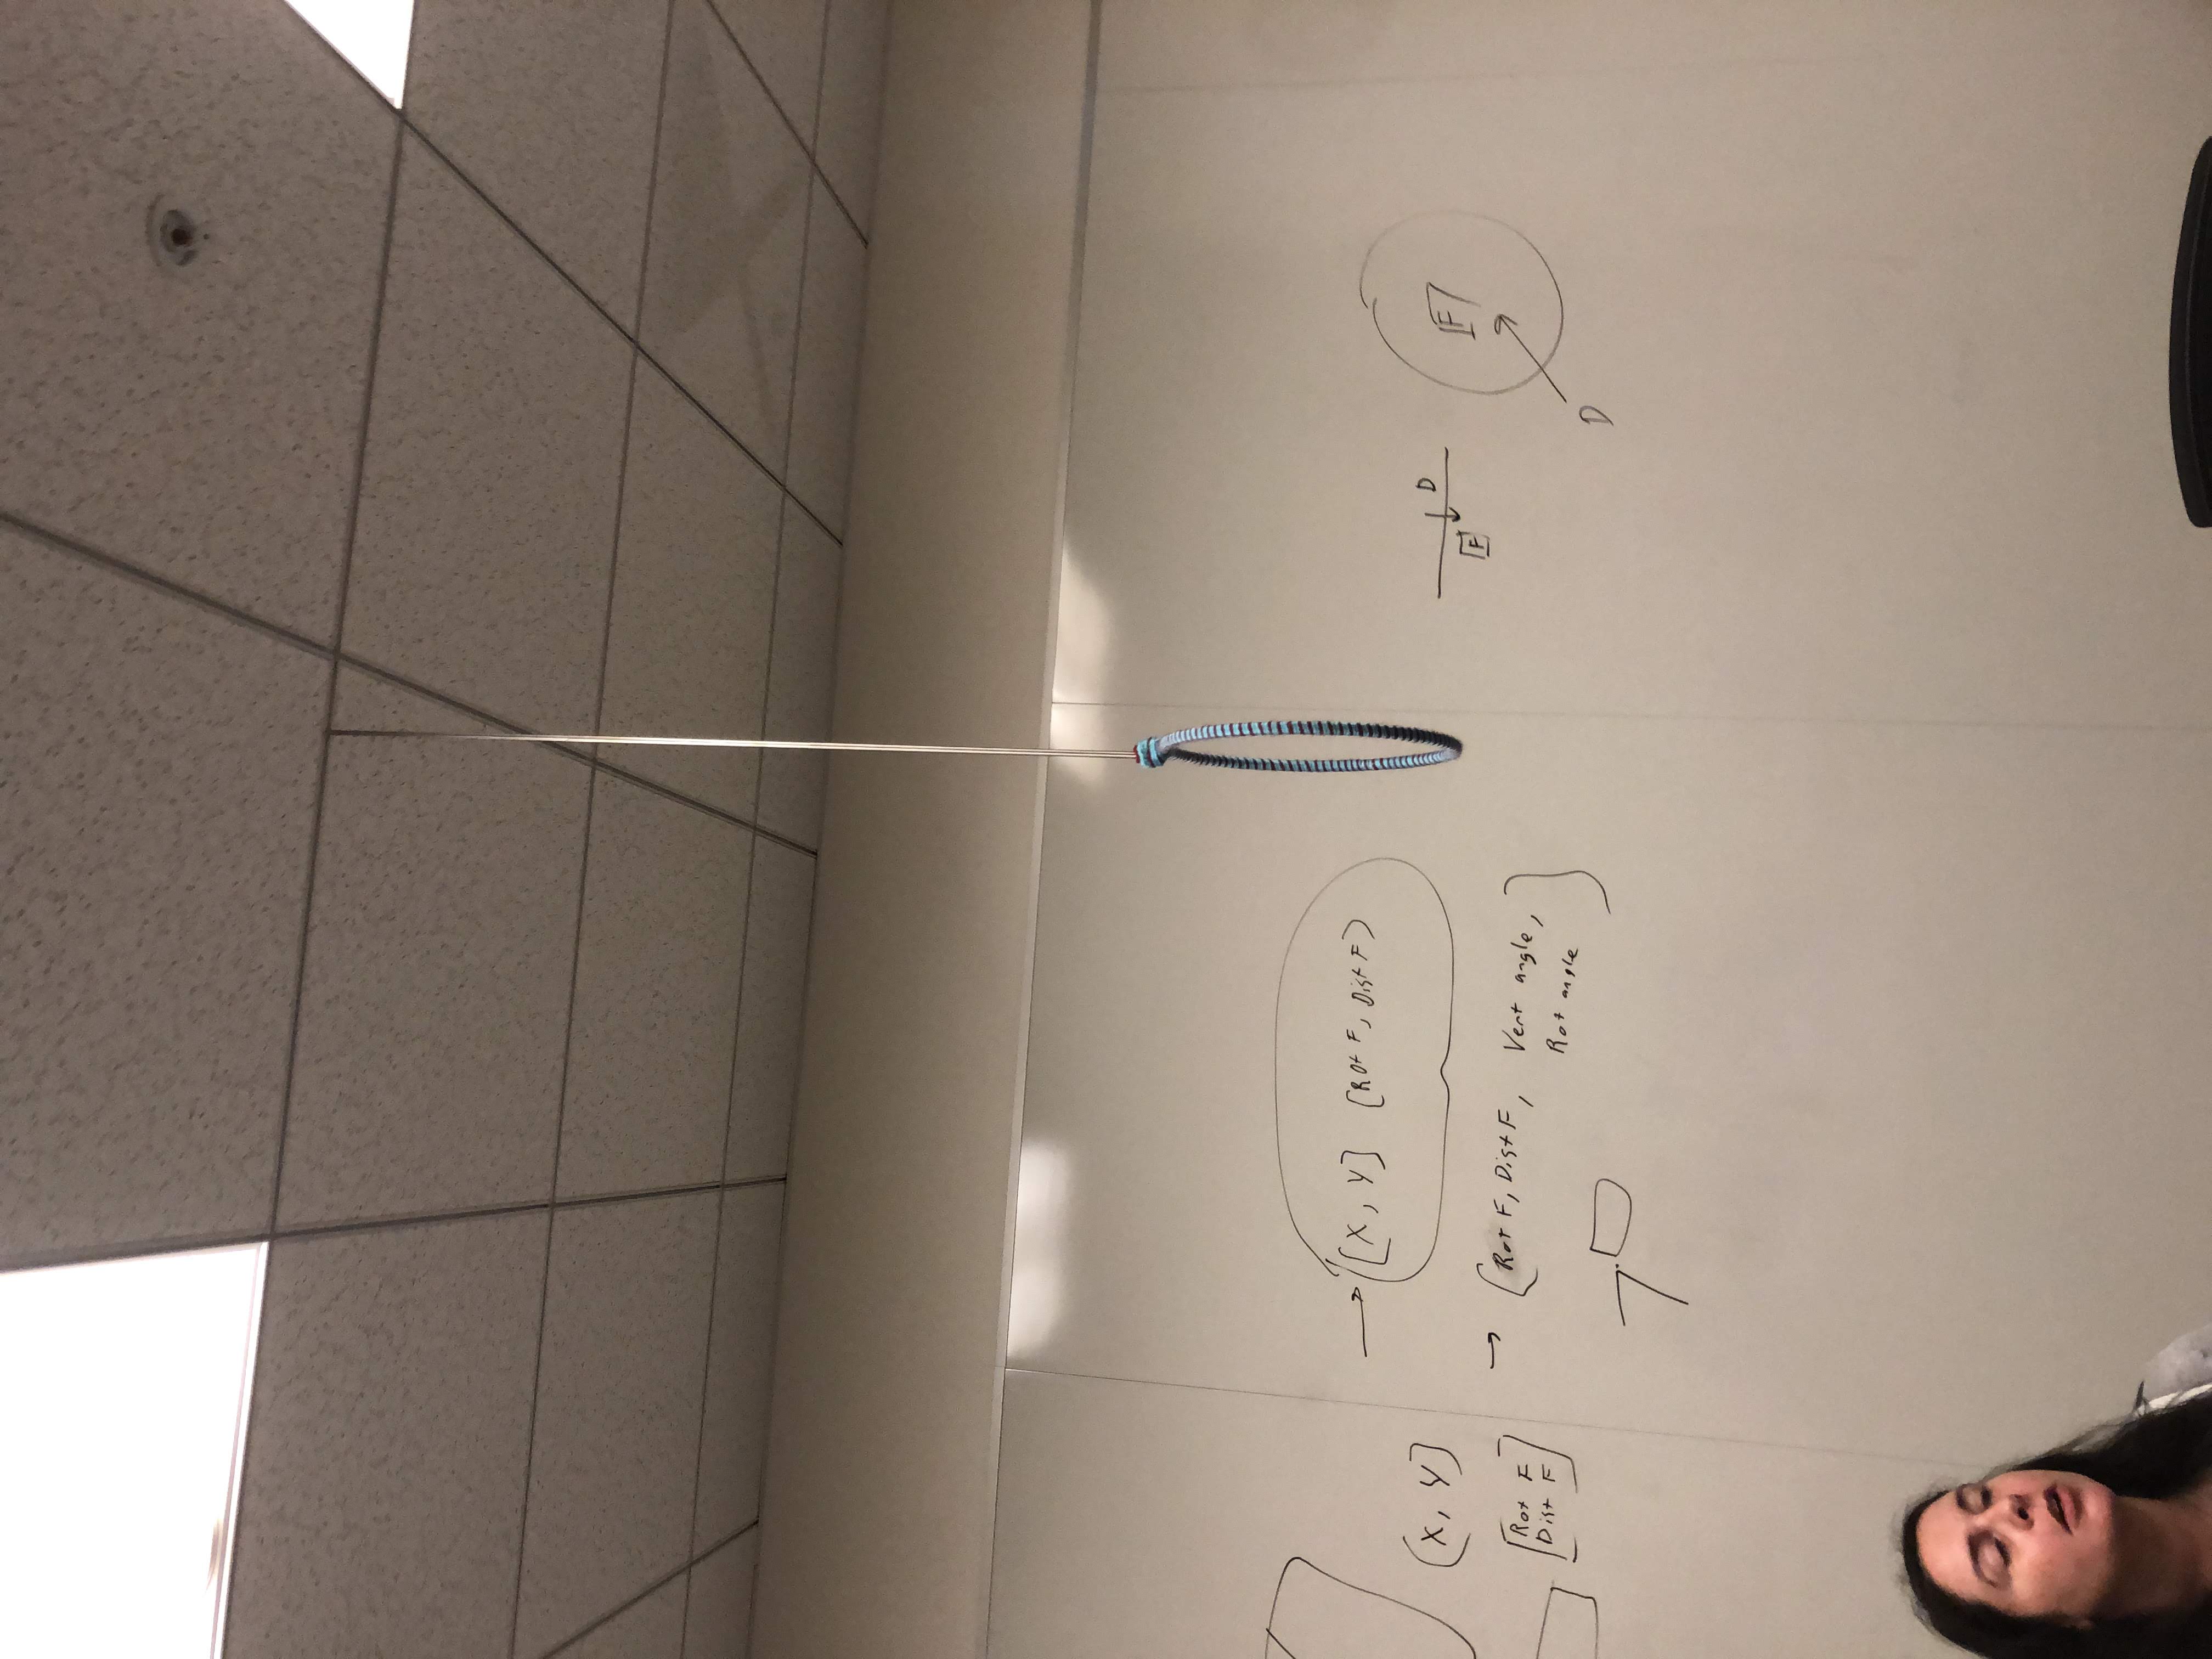 (X, Y]
[Rot F
Dist F]
→ [X, Y] (Rot F, Dist F)
→ (Rot F, Dist F, Vert angle,
Rot angle)
D
F
F
D